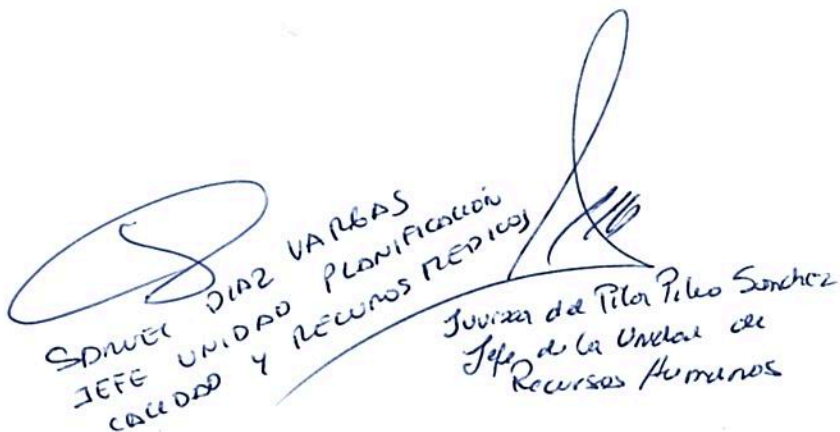 SAMUEL DIAZ VARGAS
JEFE UNIDAD PLANIFICACIÓN
CALIDAD Y RECURSOS MEDICOS
del Pilar Pileo Sanchez
Jefe de la Unidad de
Recursos Humanos